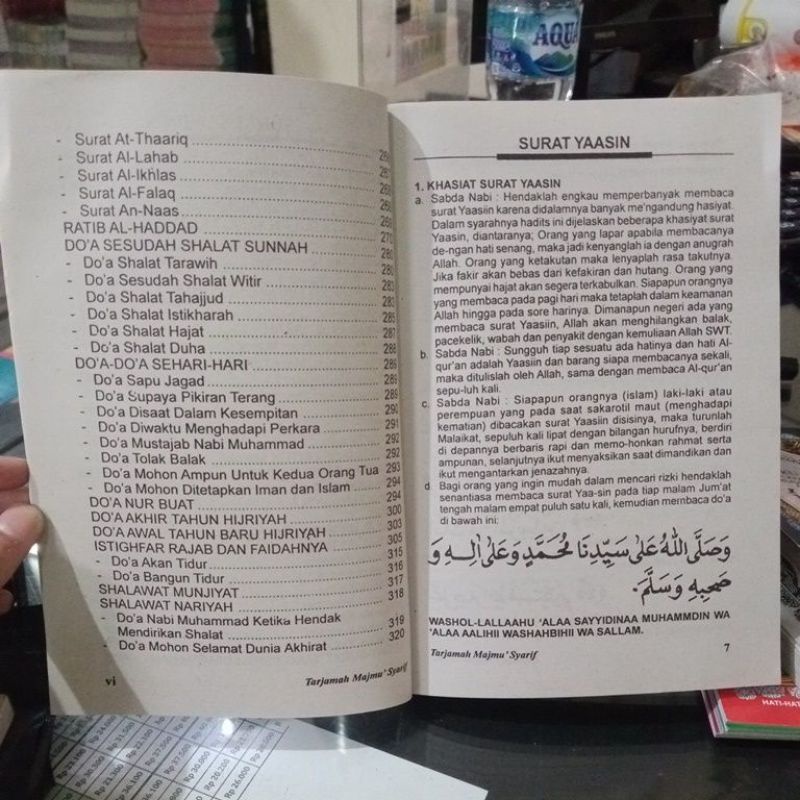 AQUA
- Surat At-Thaariq
- Surat Al-Lahab
- Surat Al-Ikhlas
- Surat Al-Falaq
- Surat An-Naas
RATIB AL-HADDAD
DO'A SESUDAH SHALAT SUNNAH
- Do'a Shalat Tarawih
- Do'a Sesudah Shalat Witir
- Do'a Shalat Tahajjud
- Do'a Shalat Istikharah
- Do'a Shalat Hajat
- Do'a Shalat Duha
DO'A-DO'A SEHARI-HARI
- Do'a Sapu Jagad
- Do'a Supaya Pikiran Terang
- Do'a Disaat Dalam Kesempitan 290
- Do'a Diwaktu Menghadapi Perkara 291
- Do'a Mustajab Nabi Muhammad 292
- Do'a Tolak Balak 292
- Do'a Mohon Ampun Untuk Kedua Orang Tua 293
- Do'a Mohon Ditetapkan Iman dan Islam 294
DO'A NUR BUAT 294
DO'A AKHIR TAHUN HIJRIYAH 300
DO'A AWAL TAHUN BARU HIJRIYAH 303
ISTIGHFAR RAJAB DAN FAIDAHNYA 305
- Do'a Akan Tidur 315
- Do'a Bangun Tidur 316
SHALAWAT MUNJIYAT 317
SHALAWAT NARIYAH 318
- Do'a Nabi Muhammad Ketika Hendak
Mendirikan Shalat 319
- Do'a Mohon Selamat Dunia Akhirat 320
vi Tarjamah Majmu' Syarif
SURAT YAASIN
1. KHASIAT SURAT YAASIN
a. Sabda Nabi : Hendaklah engkau memperbanyak membaca
surat Yaasiin karena didalamnya banyak me'ngandung hasiyat.
Dalam syarahnya hadits ini dijelaskan beberapa khasiyat surat
Yaasin, diantaranya; Orang yang lapar apabila membacanya
de-ngan hati senang, maka jadi kenyanglah ia dengan anugrah
Allah. Orang yang ketakutan maka lenyaplah rasa takutnya.
Jika fakir akan bebas dari kefakiran dan hutang. Orang yang
mempunyai hajat akan segera terkabulkan. Siapapun orangnya
yang membaca pada pagi hari maka tetaplah dalam keamanan
Allah hingga pada sore harinya. Dimanapun negeri ada yang
membaca surat Yaasiin, Allah akan menghilangkan balak,
pacekelik, wabah dan penyakit dengan kemuliaan Allah SWT.
b. Sabda Nabi : Sungguh tiap sesuatu ada hatinya dan hati Al-
qur'an adalah Yaasiin dan barang siapa membacanya sekali,
maka ditulislah oleh Allah, sama dengan membaca Al-qur'an
sepu-luh kali.
c. Sabda Nabi : Siapapun orangnya (islam) laki-laki atau
perempuan yang pada saat sakarotil maut (menghadapi
kematian) dibacakan surat Yaasiin disisinya, maka turunlah
Malaikat, sepuluh kali lipat dengan bilangan hurufnya, berdiri
di depannya berbaris rapi dan memo-honkan rahmat serta
ampunan, selanjutnya ikut menyaksikan saat dimandikan dan
ikut mengantarkan jenazahnya.
d Bagi orang yang ingin mudah dalam mencari rizki hendaklah
senantiasa membaca surat Yaa-sin pada tiap malam Jum'at
tengah malam empat puluh satu kali, kemudian membaca do'a
di bawah ini:
وَصَلَّى اللهُ عَلَى سَيِّدِنَا مُحَمَّدٍ وَعَلَى اٰلِهِ وَ
صَحْبِهِ وَسَلَّمَ.
WASHOL-LALLAAHU 'ALAA SAYYIDINAA MUHAMMDIN WA
'ALAA AALIHII WASHAHBIHII WA SALLAM.
Tarjamah Majmu' Syarif 7
HATI-HAT